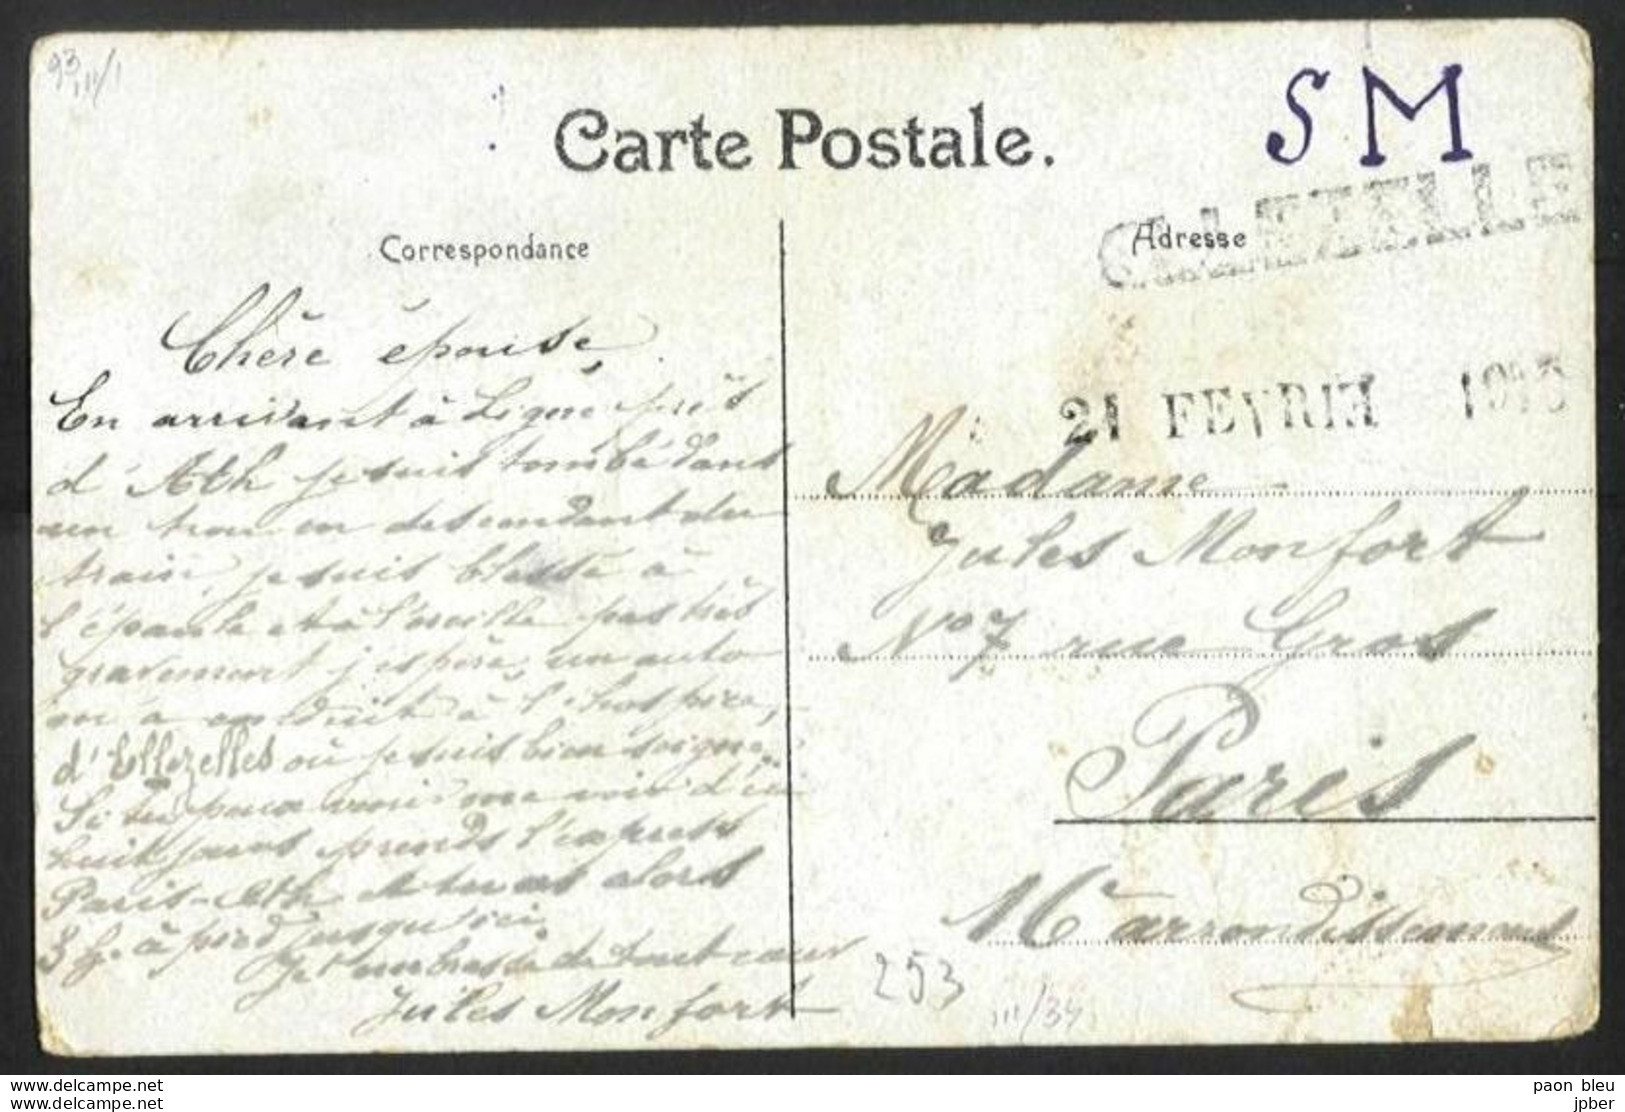 93
III/1
Carte Postale.
S M
Correspondance
Adresse
21 FEVRIE 19
Chère épouse,
En arrivant à Ligne près
d'Ath je suis tombé dans
un trou en descendant du
train je suis blessé à
l'épaule et à l'oreille pas très
gravement j'espère, un auto
m'a conduit à l'hospice,
d'Ellezelles où je suis bien soigné,
Si tu peux venir me voir d'ici
huit jours prends l'express
Paris-Ath et tu as alors
3 h. à pied jusqu'ici.
Je t'embrasse de tout cœur
Jules Monfort
Madame
Jules Monfort
N° 7 rue Gros
Paris
16e arrondissement
253
III/34
www.delcampe.net
www.delcampe.net
paon bleu
jpber